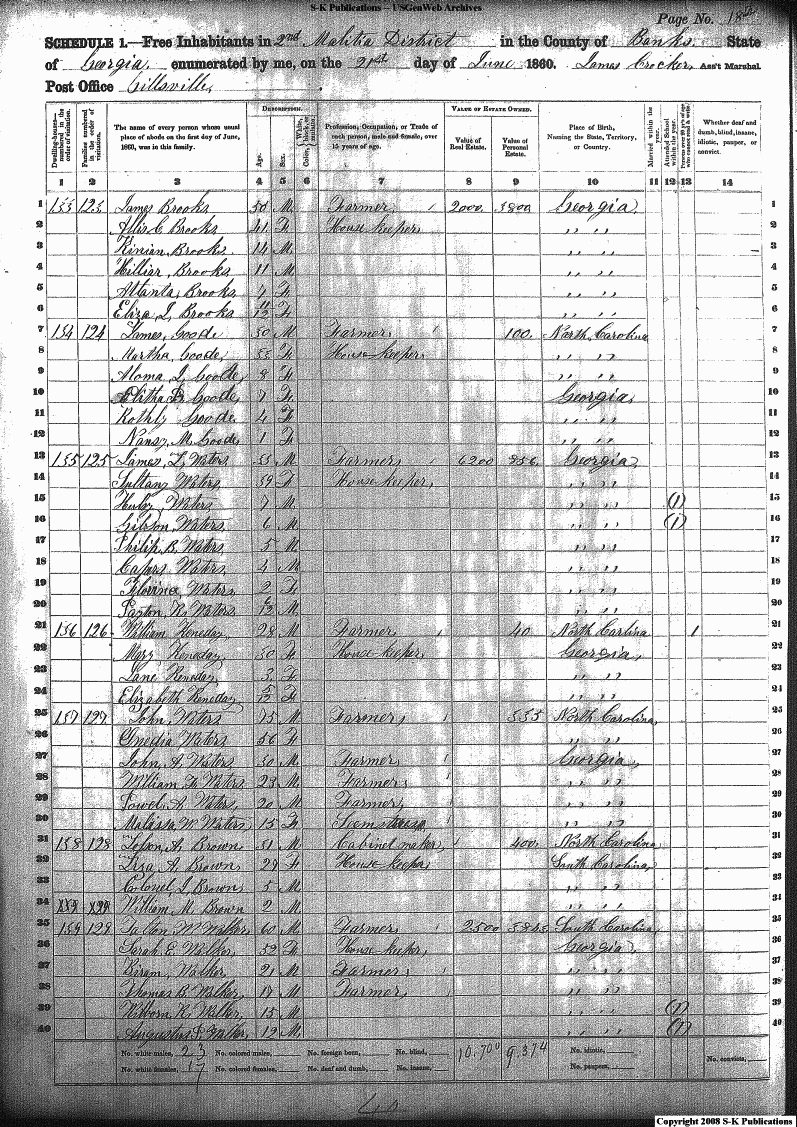 S-K Publications – USGenWeb Archives
Page No. 18
SCHEDULE 1.—Free Inhabitants in 2nd Malitia District in the County of Banks State
of Georgia enumerated by me, on the 21st day of June 1860. James Crocker Ass't Marshal
Post Office Gillsville
Dwelling-houses— numbered in the order of visitation.
Families numbered in the order of visitation.
The name of every person whose usual place of abode on the first day of June, 1860, was in this family.
DESCRIPTION.
Age.
Sex.
Color, White, black, or mulatto.
Profession, Occupation, or Trade of each person, male and female, over 15 years of age.
VALUE OF ESTATE OWNED.
Value of Real Estate.
Value of Personal Estate.
Place of Birth, Naming the State, Territory, or Country.
Married within the year.
Attended School within the year.
Persons over 20 y'rs of age who cannot read & write.
Whether deaf and dumb, blind, insane, idiotic, pauper, or convict.
1 2 3 4 5 6 7 8 9 10 11 12 13 14
1 153 123 James Brooks 50 M Farmer 2000 3800 Georgia 1
2 Allis C Brooks 41 F House keeper " " 2
3 Kinian Brooks 14 M " " 3
4 Hilliar Brooks 11 M " " 4
5 Attanta Brooks 4 F " " 5
6 Eliza J Brooks 11/12 F " " 6
7 154 124 James Goode 50 M Farmer 100 North Carolina 7
8 Martha Goode F House keeper " " 8
9 Goode 8 F " " 9
10 Goode 7 F Georgia 10
11 Goode 4 F " " 11
12 Nansy M Goode 1 F " " 12
13 155 125 James Waters M Farmer 6200 856 Georgia 13
14 Sultany Waters 39 F House keeper " " 14
15 Waters 7 M " " (1) 15
16 Gibson Waters 6 M " " (1) 16
17 Philip B Waters 5 M " " 17
18 Capers Waters 4 M " " 18
19 Waters 2 F " " 19
20 Waters M " " 20
21 156 126 William Keneday 28 M Farmer 40 North Carlina 1 21
22 Mary Keneday 30 F House keeper Georgia 22
23 Jane Keneday 3 F " " 23
24 Elizabeth Keneday F " " 24
25 157 127 John Waters 75 M Farmer 555 North Carolina 25
26 Waters 56 F " " 26
27 John A Waters 30 M Farmer Georgia 27
28 William Waters 23 M Farmer " " 28
29 Waters 20 M Farmer " " 29
30 Malissa W Waters 15 F Seemstress " " 30
31 158 128 A Brown 31 M Cabinet maker 400 North Carolina 31
32 Liza A Brown 29 F House keeper South Carolina 32
33 Colonel J Brown 5 M " " 33
34 William M Brown 2 M " " 34
35 159 129 W Walker 60 M Farmer 2500 South Carolina 35
36 Sarah E Walker 52 F House keeper Georgia 36
37 Hiram Walker 21 M Farmer " " 37
38 Thomas B Walker 17 M Farmer " " 38
39 Wilborn R Walker 15 M " " (1) 39
40 Augustus Walker 12 M " " (1) 40
No. white males, 23 No. colored males, No. foreign born, No. blind, 10.700 9.374 No. idiotic,
No. white females, 17 No. colored females, No. deaf and dumb, No. insane, No. paupers, No. convicts,
40
Copyright 2008 S-K Publications